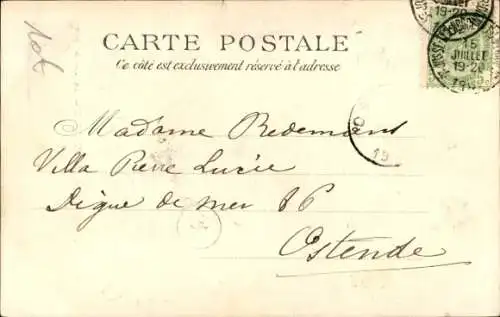 CARTE POSTALE
Ce côté est exclusivement réservé à l'adresse
Madame Redemans
Villa Pierre Lucie
Digue de mer 86
Ostende
15
JUILLET
19-20